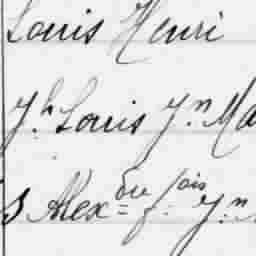 Louis Henri
Jh. Louis Jn. Ma
s Alexdre f.ois Jn.